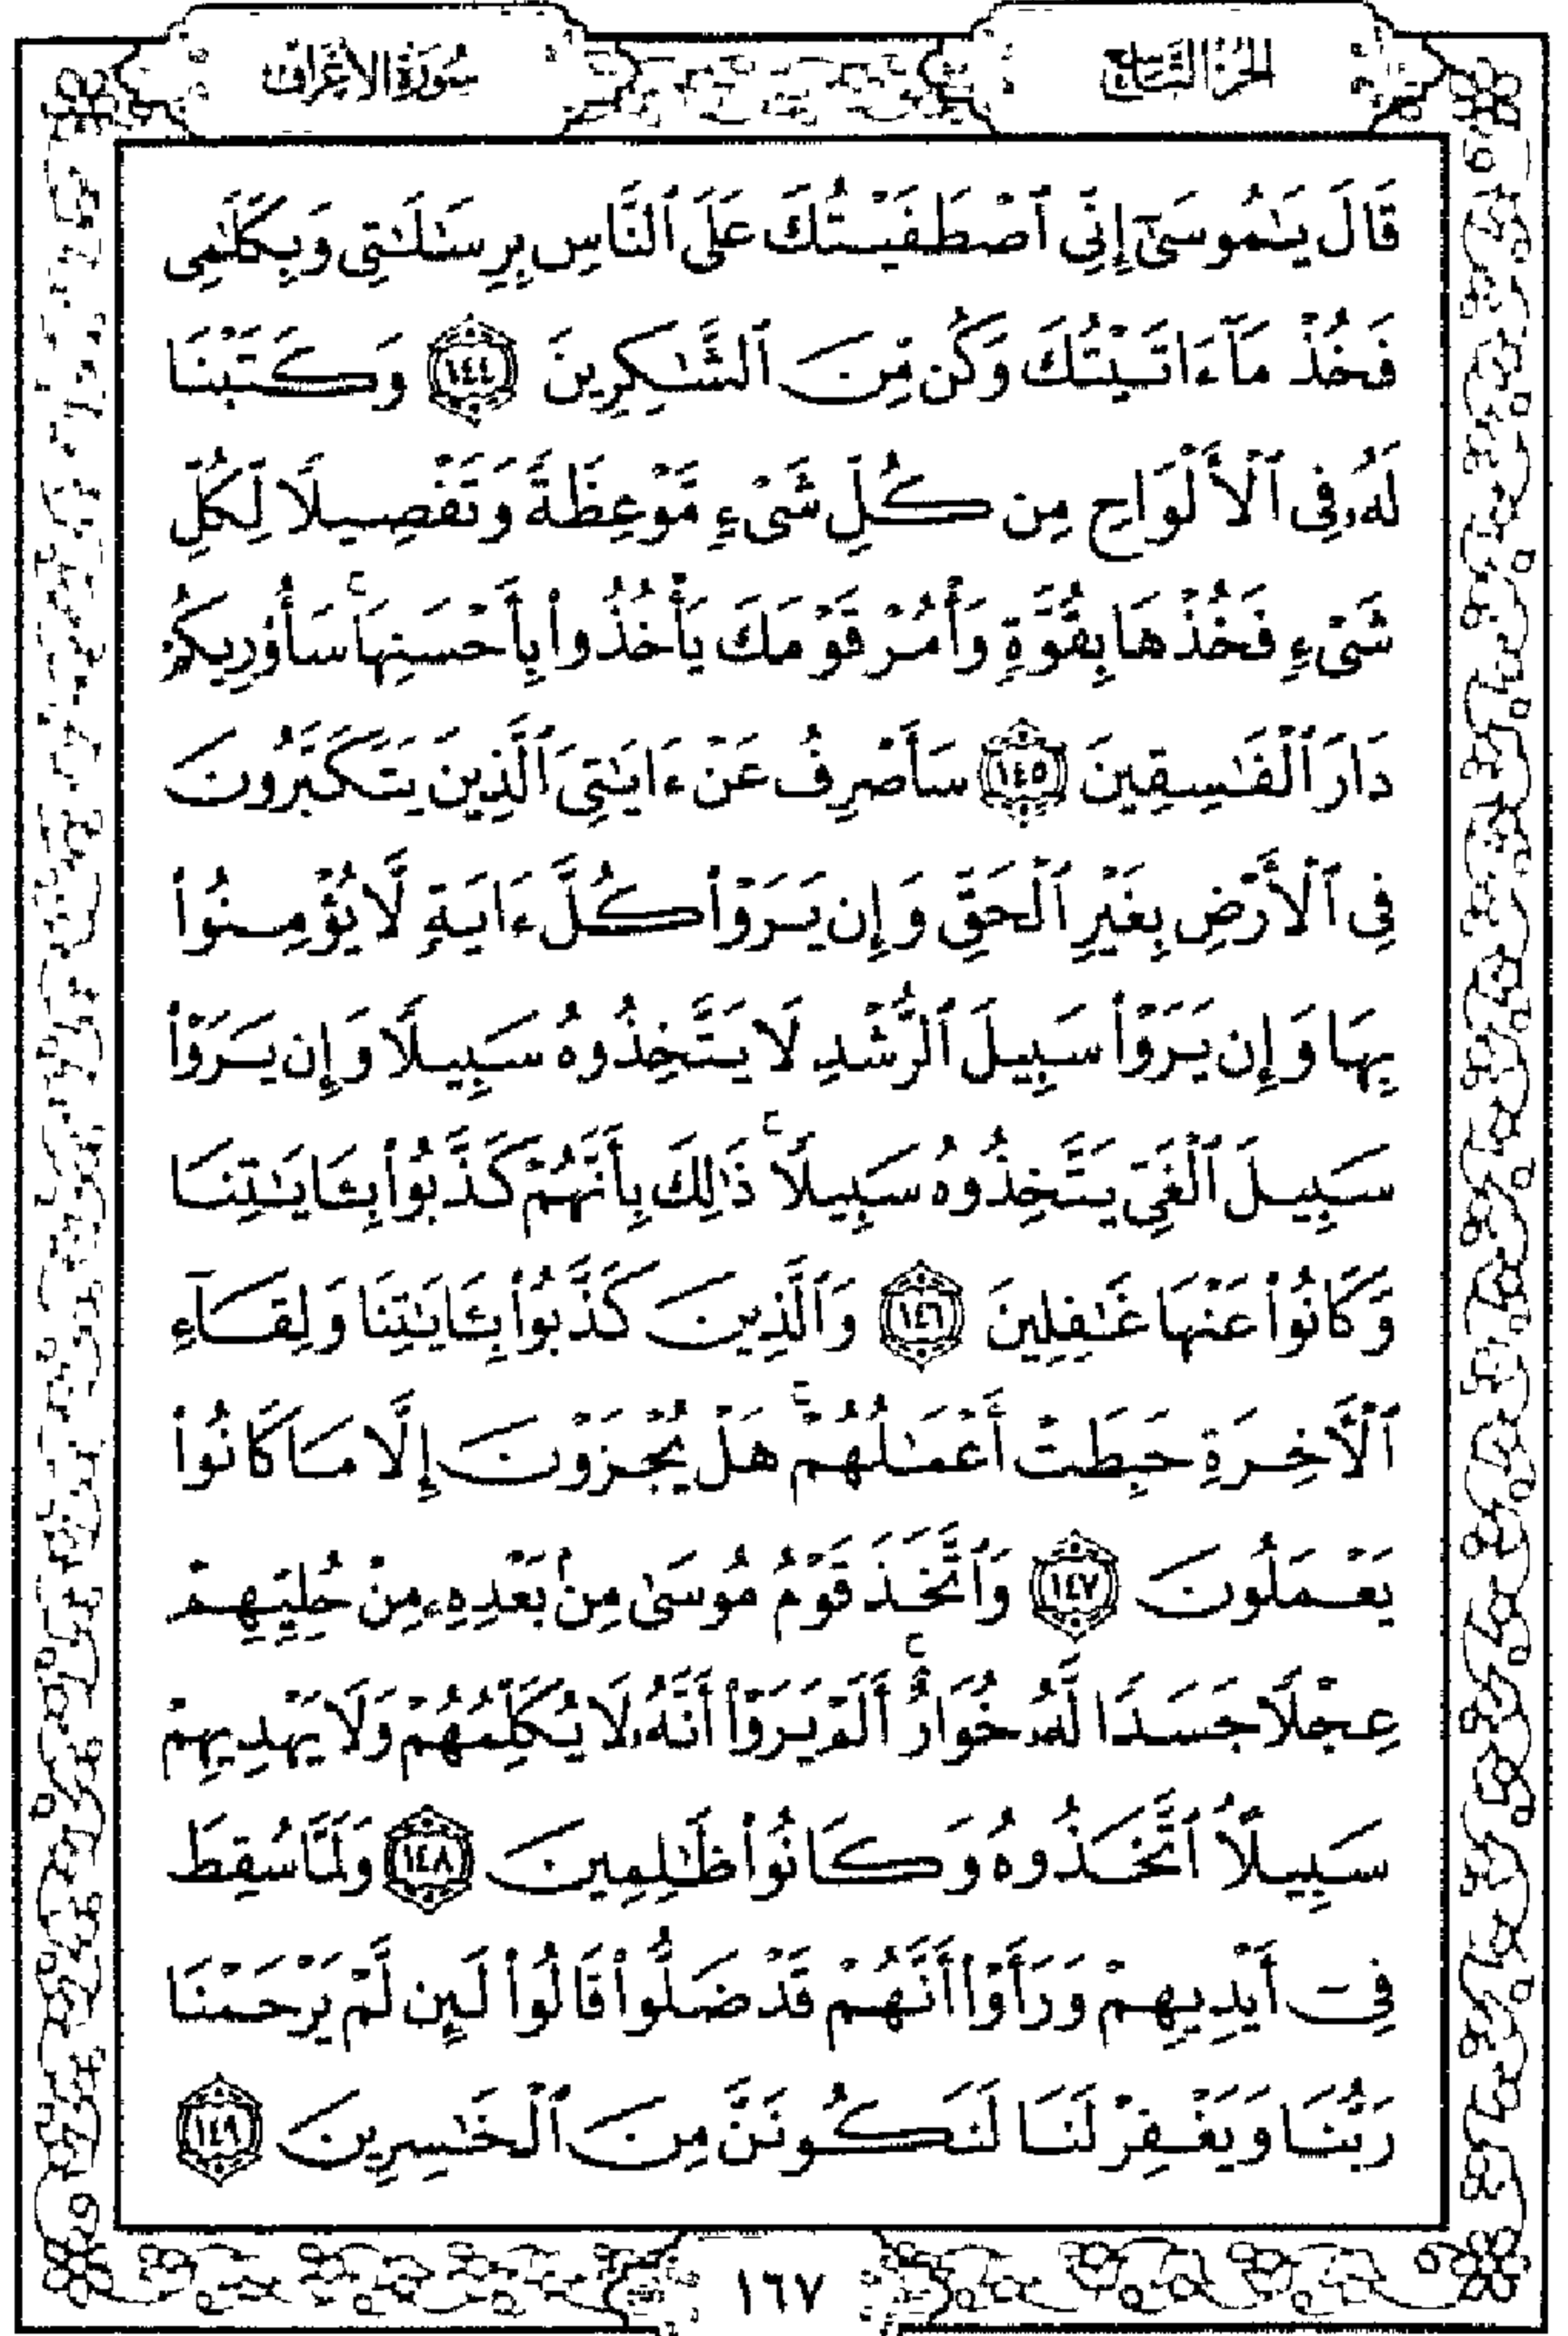 الجزء التاسع
سورة الأعراف
قَالَ يَٰمُوسَىٰٓ إِنِّي ٱصْطَفَيْتُكَ عَلَى ٱلنَّاسِ بِرِسَٰلَٰتِي وَبِكَلَٰمِى
فَخُذْ مَآ ءَاتَيْتُكَ وَكُن مِّنَ ٱلشَّٰكِرِينَ ١٤٤ وَكَتَبْنَا
لَهُۥ فِى ٱلْأَلْوَاحِ مِن كُلِّ شَىْءٍ مَّوْعِظَةً وَتَفْصِيلًا لِّكُلِّ
شَىْءٍ فَخُذْهَا بِقُوَّةٍ وَأْمُرْ قَوْمَكَ يَأْخُذُوا۟ بِأَحْسَنِهَا ۚ سَأُو۟رِيكُمْ
دَارَ ٱلْفَٰسِقِينَ ١٤٥ سَأَصْرِفُ عَنْ ءَايَٰتِىَ ٱلَّذِينَ يَتَكَبَّرُونَ
فِى ٱلْأَرْضِ بِغَيْرِ ٱلْحَقِّ وَإِن يَرَوْا۟ كُلَّ ءَايَةٍ لَّا يُؤْمِنُوا۟
بِهَا وَإِن يَرَوْا۟ سَبِيلَ ٱلرُّشْدِ لَا يَتَّخِذُوهُ سَبِيلًا وَإِن يَرَوْا۟
سَبِيلَ ٱلْغَىِّ يَتَّخِذُوهُ سَبِيلًا ۚ ذَٰلِكَ بِأَنَّهُمْ كَذَّبُوا۟ بِـَٔايَٰتِنَا
وَكَانُوا۟ عَنْهَا غَٰفِلِينَ ١٤٦ وَٱلَّذِينَ كَذَّبُوا۟ بِـَٔايَٰتِنَا وَلِقَآءِ
ٱلْءَاخِرَةِ حَبِطَتْ أَعْمَٰلُهُمْ ۚ هَلْ يُجْزَوْنَ إِلَّا مَا كَانُوا۟
يَعْمَلُونَ ١٤٧ وَٱتَّخَذَ قَوْمُ مُوسَىٰ مِنۢ بَعْدِهِۦ مِنْ حُلِيِّهِمْ
عِجْلًا جَسَدًا لَّهُۥ خُوَارٌ ۚ أَلَمْ يَرَوْا۟ أَنَّهُۥ لَا يُكَلِّمُهُمْ وَلَا يَهْدِيهِمْ
سَبِيلًا ۘ ٱتَّخَذُوهُ وَكَانُوا۟ ظَٰلِمِينَ ١٤٨ وَلَمَّا سُقِطَ
فِىٓ أَيْدِيهِمْ وَرَأَوْا۟ أَنَّهُمْ قَدْ ضَلُّوا۟ قَالُوا۟ لَئِن لَّمْ يَرْحَمْنَا
رَبُّنَا وَيَغْفِرْ لَنَا لَنَكُونَنَّ مِنَ ٱلْخَٰسِرِينَ ١٤٩
١٦٧